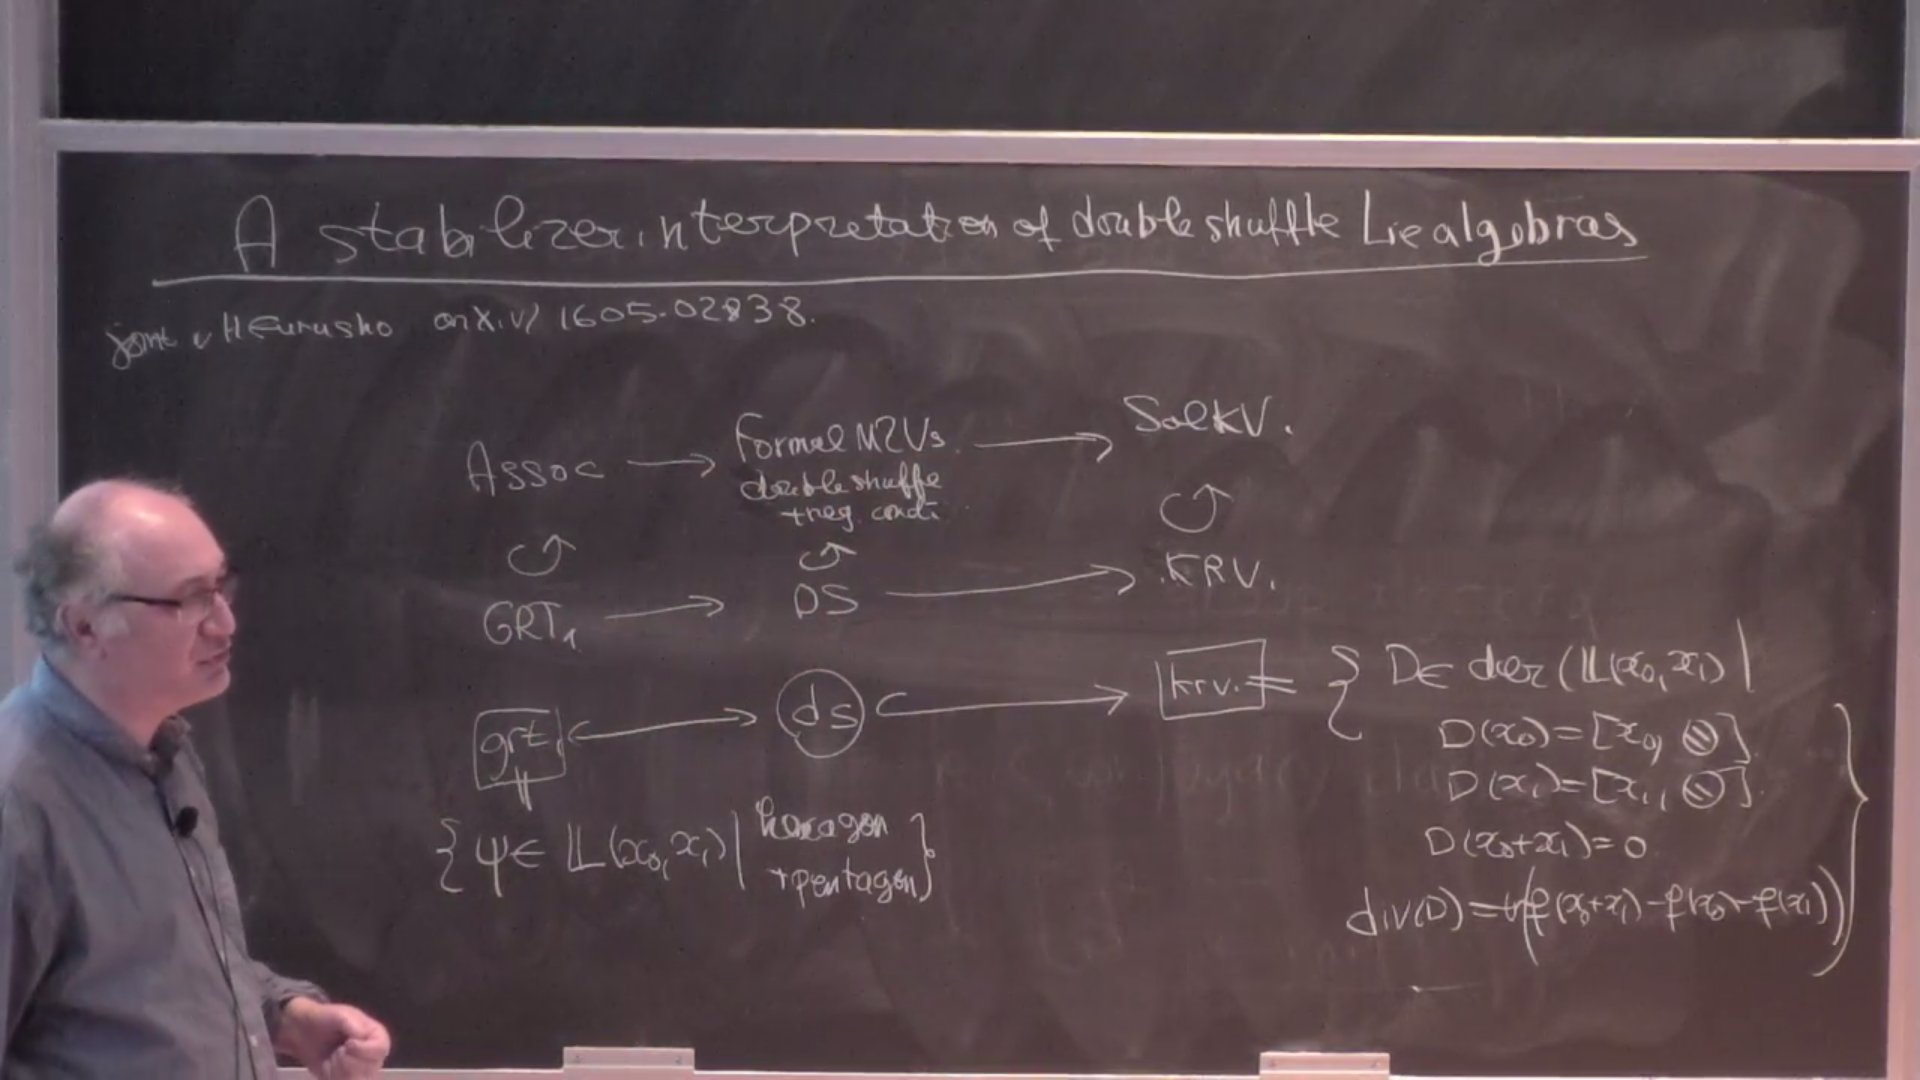 A stabilizer interpretation of double shuffle Lie algebras
joint w H Furusho arXiv/ 1605.02838.
Assoc → Formal MZVs → SolKV.
double shuffle
+ reg. cond.
↺ ↺ ↺
GRT₁ → DS → KRV.
grt₁ ↪ ds ↪ krv. = { D ∈ der(𝕃(x₀,x₁) |
D(x₀)=[x₀, ⦸]
D(x₁)=[x₁, ⦸].
D(x₀+x₁)=0
div(D)=tr(f(x₀+x₁)-f(x₀)-f(x₁)) }
||
{ψ∈ 𝕃(x₀,x₁) | hexagon
+pentagon}